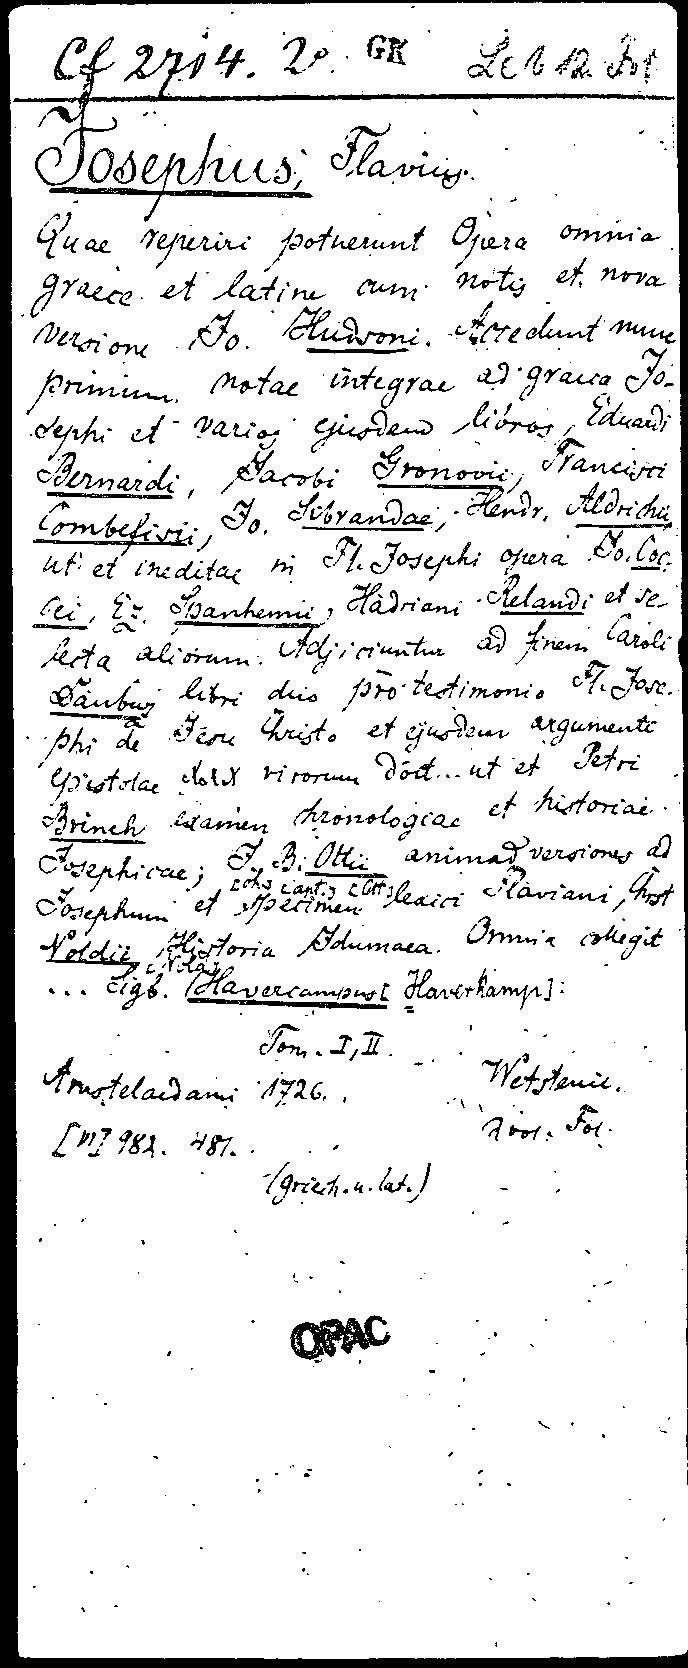 Cf 2714. 2°. GK Le b 12. Fol
Josephus, Flavius.
Quae reperiri potuerunt Opera omnia
graece et latine cum notis et nova
versione Jo. Hudsoni. Accedunt nunc
primum notae integrae ad graeca Jo-
sephi et varios ejusdem libros, Eduardi
Bernardi, Jacobi Gronovii, Francisci
Combefisii, Jo. Sibrandae, Hendr. Aldrichii,
ut et ineditae in Fl. Josephi opera Jo. Coc-
cei, Ez. Spanhemii, Hadriani Relandi et se-
lecta aliorum. Adjiciuntur ad finem Caroli
Daubuz libri duo pro testimonio Fl. Jose-
phi de Jesu Christo et ejusdem argumenti
epistolae XXX virorum doct... ut et Petri
Brinch examen chronologiae et historiae
Josephicae; J. B. Ottii animadversiones ad
[Joh. Bapt.] [Ott]
Josephum et specimen lexici Flaviani, Christ
Noldii Historia Idumaea. Omnia collegit
[Nold]
... Sigb. Havercampus [Haverkamp]:
Tom. I, II.
Amstelaedami 1726. Wetstenii.
[VI] 982. 481. 2 vol. Fol.
(griech. u. lat.)
OPAC